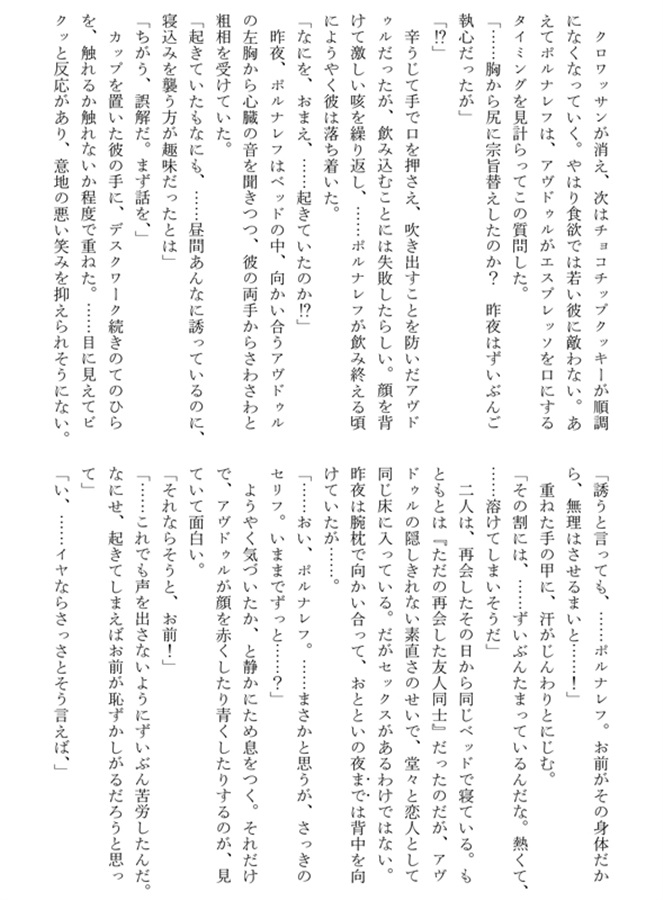 クロワッサンが消え、次はチョコチップクッキーが順調
になくなっていく。やはり食欲では若い彼に敵わない。あ
えてポルナレフは、アヴドゥルがエスプレッソを口にする
タイミングを見計らってこの質問した。
「……胸から尻に宗旨替えしたのか？　昨夜はずいぶんご
執心だったが」
「!?」
　辛うじて手で口を押さえ、吹き出すことを防いだアヴド
ゥルだったが、飲み込むことには失敗したらしい。顔を背
けて激しい咳を繰り返し、……ポルナレフが飲み終える頃
にようやく彼は落ち着いた。
「なにを、おまえ、……起きていたのか!?」
　昨夜、ポルナレフはベッドの中、向かい合うアヴドゥル
の左胸から心臓の音を聞きつつ、彼の両手からさわさわと
粗相を受けていた。
「起きていたもなにも、……昼間あんなに誘っているのに、
寝込みを襲う方が趣味だったとは」
「ちがう、誤解だ。まず話を、」
　カップを置いた彼の手に、デスクワーク続きのてのひら
を、触れるか触れないか程度で重ねた。……目に見えてビ
クッと反応があり、意地の悪い笑みを抑えられそうにない。
「誘うと言っても、……ポルナレフ。お前がその身体だか
ら、無理はさせるまいと……！」
　重ねた手の甲に、汗がじんわりとにじむ。
「その割には、……ずいぶんたまっているんだな。熱くて、
……溶けてしまいそうだ」
　二人は、再会したその日から同じベッドで寝ている。も
ともとは『ただの再会した友人同士』だったのだが、アヴ
ドゥルの隠しきれない素直さのせいで、堂々と恋人として
同じ床に入っている。だがセックスがあるわけではない。
昨夜は腕枕で向かい合って、おとといの夜までは背中を向
けていたが……。
「……おい、ポルナレフ。……まさかと思うが、さっきの
セリフ。いままでずっと……？」
　ようやく気づいたか、と静かにため息をつく。それだけ
で、アヴドゥルが顔を赤くしたり青くしたりするのが、見
ていて面白い。
「それならそうと、お前！」
「……これでも声を出さないようにずいぶん苦労したんだ。
なにせ、起きてしまえばお前が恥ずかしがるだろうと思っ
て」
「い、……イヤならさっさとそう言えば、」